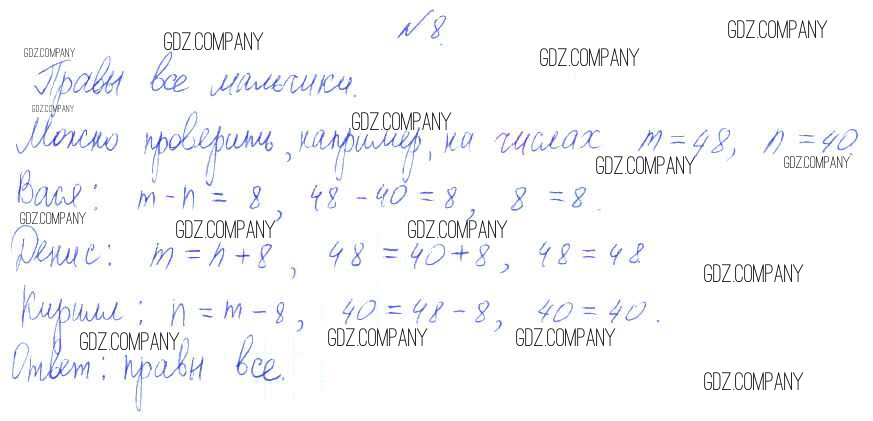 № 8.
GDZ.COMPANY GDZ.COMPANY GDZ.COMPANY GDZ.COMPANY
Правы все мальчики.
GDZ.COMPANY GDZ.COMPANY
Можно проверить, например, на числах m = 48, n = 40
GDZ.COMPANY GDZ.COMPANY
Вася: m - n = 8, 48 - 40 = 8, 8 = 8.
GDZ.COMPANY GDZ.COMPANY GDZ.COMPANY
Денис: m = n + 8, 48 = 40 + 8, 48 = 48
GDZ.COMPANY
Кирилл: n = m - 8, 40 = 48 - 8, 40 = 40.
GDZ.COMPANY GDZ.COMPANY GDZ.COMPANY
Ответ: правы все.
GDZ.COMPANY